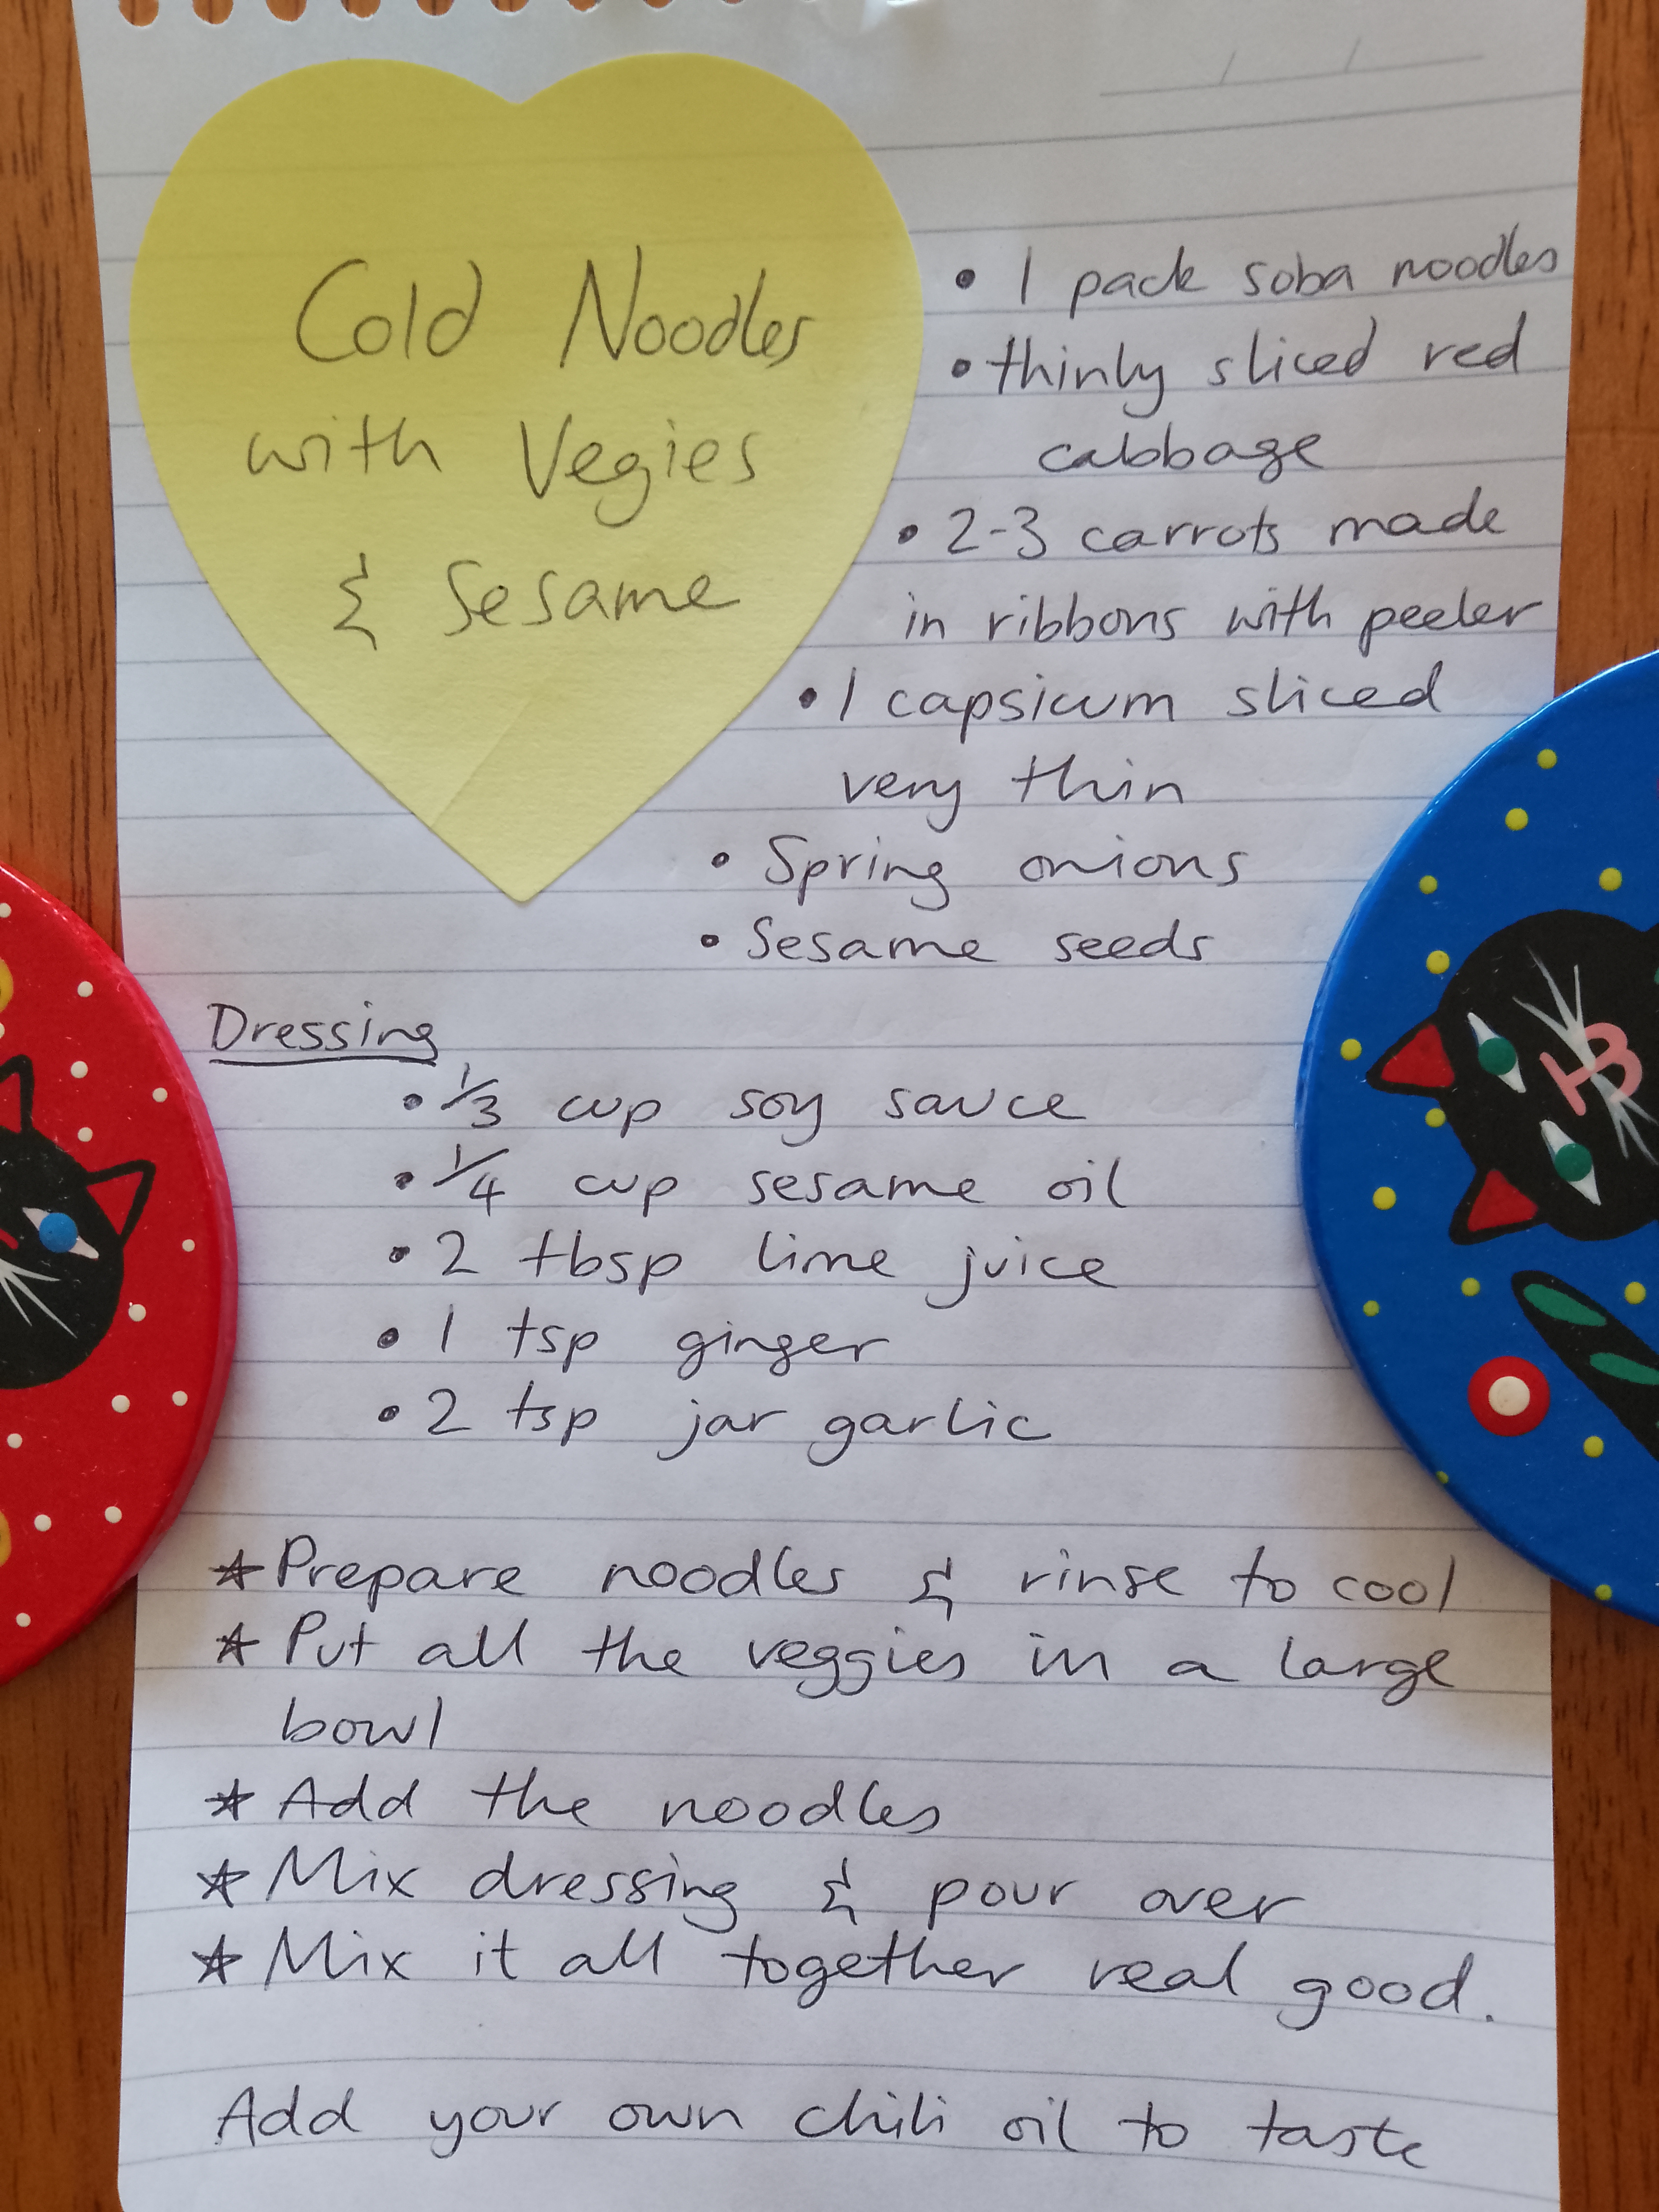 Cold Noodles
with Vegies
& Sesame
• 1 pack soba noodles
• thinly sliced red
cabbage
• 2-3 carrots made
in ribbons with peeler
• 1 capsicum sliced
very thin
• Spring onions
• Sesame seeds
Dressing
• 1/3 cup soy sauce
• 1/4 cup sesame oil
• 2 tbsp lime juice
• 1 tsp ginger
• 2 tsp jar garlic
* Prepare noodles & rinse to cool
* Put all the veggies in a large
bowl
* Add the noodles
* Mix dressing & pour over
* Mix it all together real good.
Add your own chili oil to taste